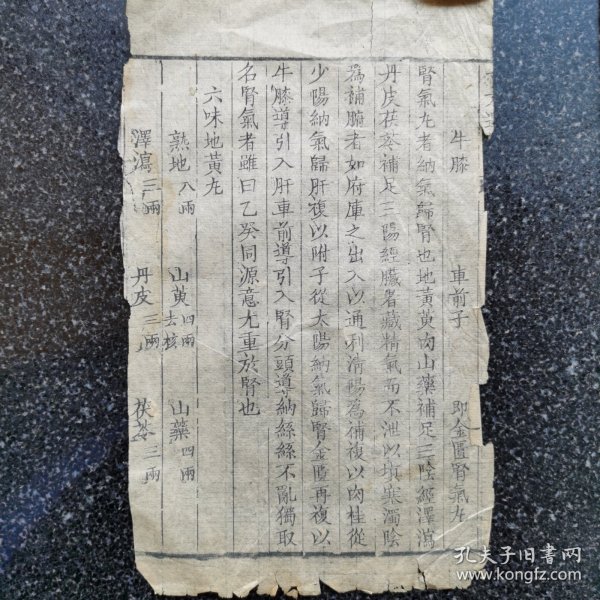 牛膝 車前子 即金匱腎氣丸
腎氣丸者納氣歸腎也地黃萸肉山藥補足三陰經澤瀉
丹皮茯苓補足三陽經臟者藏精氣而不泄以填塞濁陰
為補腑者如府庫之出入以通利清陽為補複以肉桂從
少陽納氣歸肝複以附子從太陽納氣歸腎金匱再複以
牛膝導引入肝車前導引入腎分頭導納絲絲不亂獨取
名腎氣者雖曰乙癸同源意尤重於腎也
六味地黃丸
熟地八兩 山萸四兩去核 山藥四兩
澤瀉三兩 丹皮三兩 茯苓三兩
孔夫子旧书网
www.kongfz.com